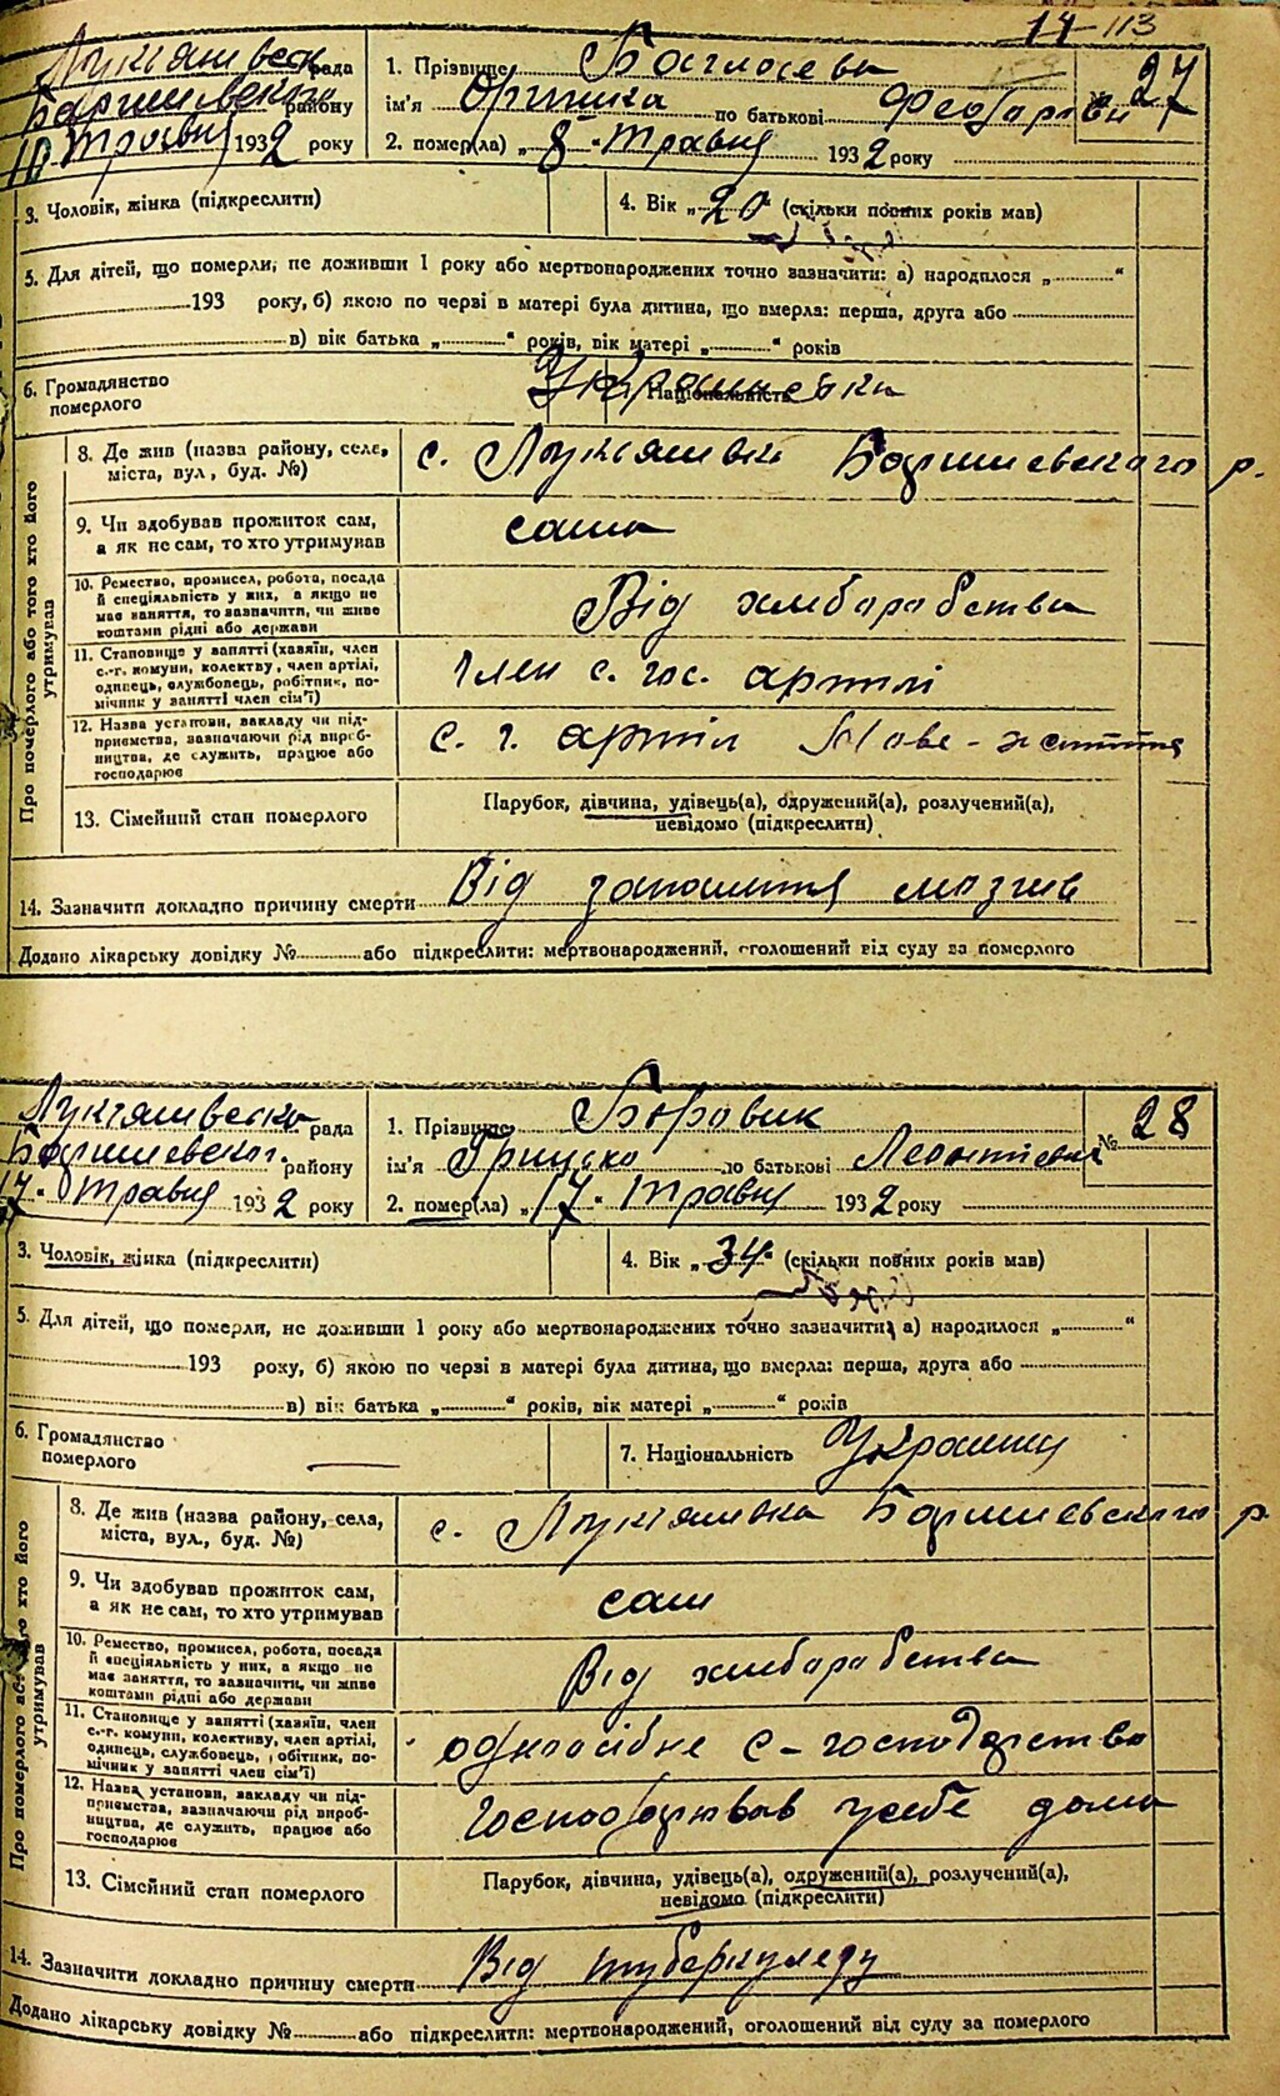 14-113
рада
району
травня 1932 року
1. Прізвище
ім'я по батькові
№ 27
2. помер(ла) „8“ травня 1932 року
3. Чоловік, жінка (підкреслити)
4. Вік „20“ (скільки повних років мав)
5. Для дітей, що померли, не доживши 1 року або мертвонароджених точно зазначити: а) народилося „ “
193 року, б) якою по черзі в матері була дитина, що вмерла: перша, друга або
в) вік батька „ “ років, вік матері „ “ років
6. Громадянство
померлого
Національність Українка
Про померлого або того хто його утримував
8. Де жив (назва району, села,
міста, вул, буд. №)
с. Лукяшівка р.
9. Чи здобував прожиток сам,
а як не сам, то хто утримував
сама
10. Ремество, промисел, робота, посада
й спеціяльність у них, а якщо не
має заняття, то зазначити, чи живе
коштами рідні або держави
Від хліборобства
11. Становище у занятті (хазяїн, член
с.-г. комуни, колективу, член артілі,
одинець, службовець, робітник, по-
мічник у занятті член сім'ї)
Член с. гос. артілі
12. Назва установи, закладу чи під-
приємства, зазначаючи рід вироб-
ництва, де служить, працює або
господарює
с. г. артіл Нове-життя
13. Сімейний стан померлого
Парубок, дівчина, удівець(а), одружений(а), розлучений(а),
невідомо (підкреслити)
14. Зазначити докладно причину смерти Від запалення мозгив
Додано лікарську довідку № або підкреслити: мертвонароджений, оголошений від суду за померлого
рада
району
17 травня 1932 року
1. Прізвище Боровик
ім'я Грицько по батькові Леонтієвич
№ 28
2. помер(ла) „17“ травня 1932 року
3. Чоловік, жінка (підкреслити)
4. Вік „34“ (скільки повних років мав)
5. Для дітей, що померли, не доживши 1 року або мертвонароджених точно зазначити: а) народилося „ “
193 року, б) якою по черзі в матері була дитина, що вмерла: перша, друга або
в) вік батька „ “ років, вік матері „ “ років
6. Громадянство
померлого
7. Національність Украинец
Про померлого або того хто його утримував
8. Де жив (назва району, села,
міста, вул., буд. №)
с. Лукяшівка р.
9. Чи здобував прожиток сам,
а як не сам, то хто утримував
сам
10. Ремество, промисел, робота, посада
й спеціяльність у них, а якщо не
має заняття, то зазначити, чи живе
коштами рідні або держави
Від хліборобства
11. Становище у занятті (хазяїн, член
с.-г. комуни, колективу, член артілі,
одинець, службовець, робітник, по-
мічник у занятті член сім'ї)
одноосібне с-господарство
12. Назва установи, закладу чи під-
приємства, зазначаючи рід вироб-
ництва, де служить, працює або
господарює
Господарював у себе дома
13. Сімейний стан померлого
Парубок, дівчина, удівець(а), одружений(а), розлучений(а),
невідомо (підкреслити)
14. Зазначити докладно причину смерти Від туберкулезу
Додано лікарську довідку № або підкреслити: мертвонароджений, оголошений від суду за померлого